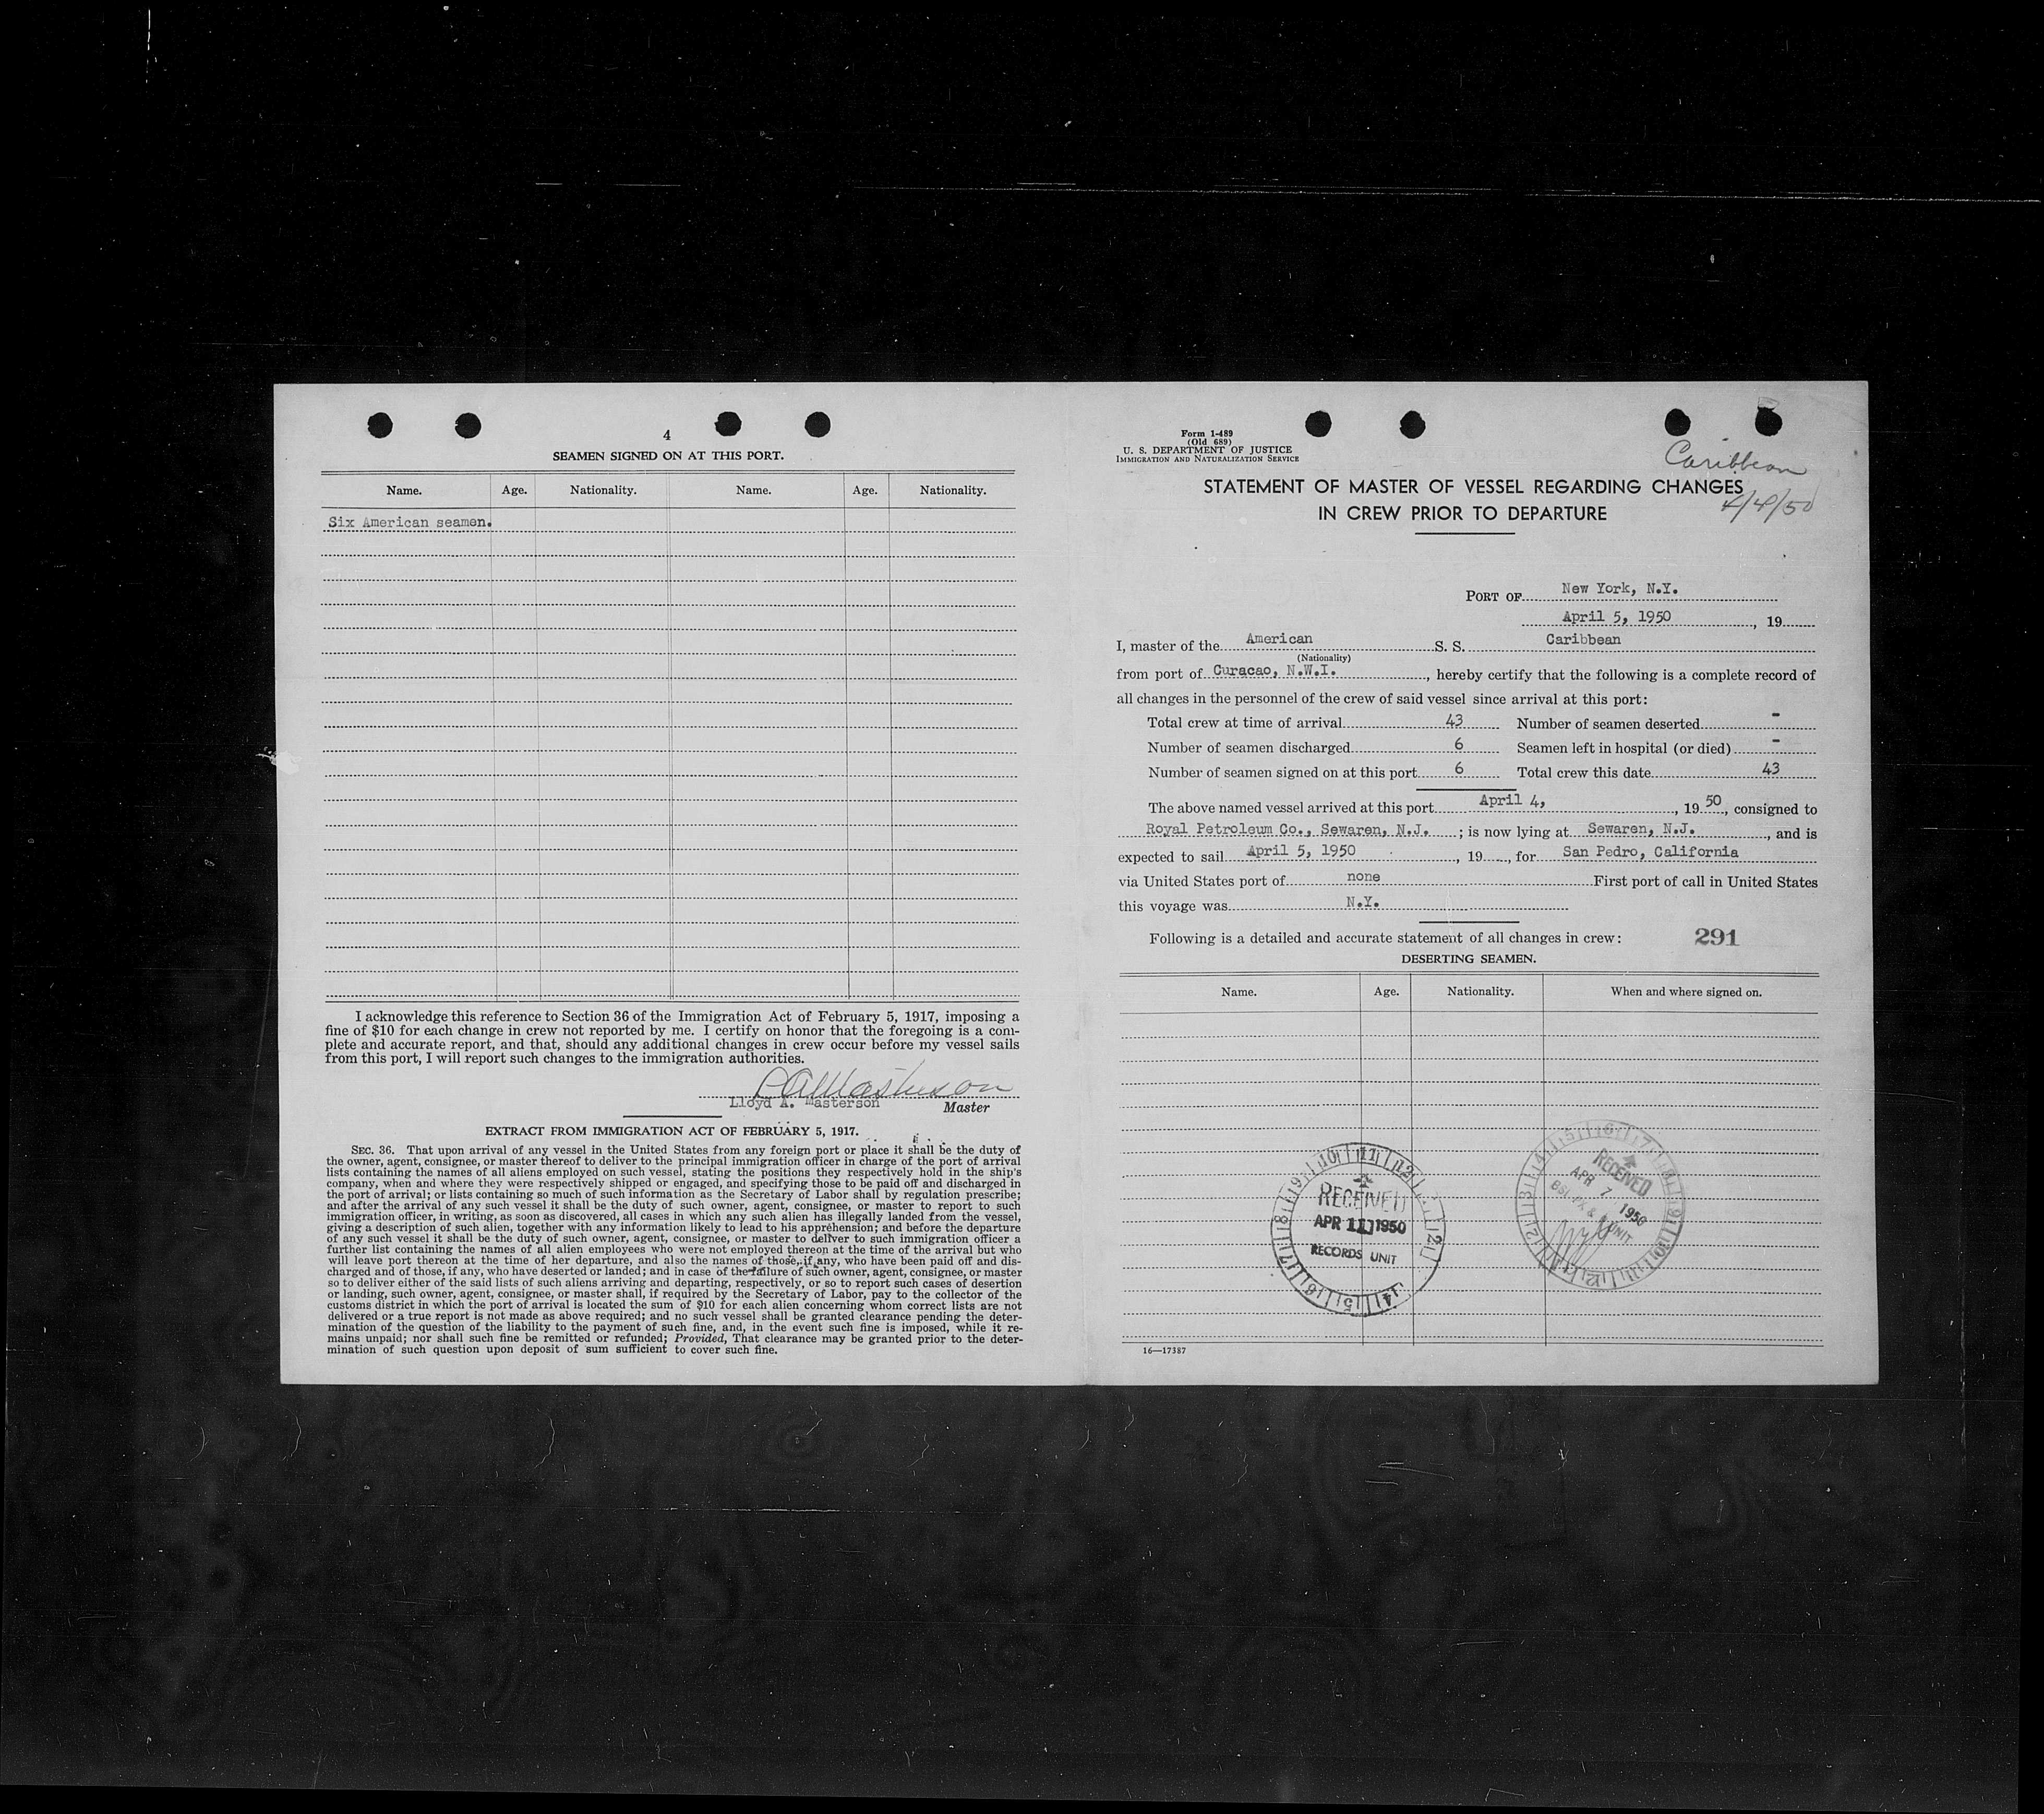 4
SEAMEN SIGNED ON AT THIS PORT.
Name. Age. Nationality. Name. Age. Nationality.
Six American seamen.
I acknowledge this reference to Section 36 of the Immigration Act of February 5, 1917, imposing a
fine of $10 for each change in crew not reported by me. I certify on honor that the foregoing is a com-
plete and accurate report, and that, should any additional changes in crew occur before my vessel sails
from this port, I will report such changes to the immigration authorities.
L A Masterson
Lloyd A. Masterson Master
EXTRACT FROM IMMIGRATION ACT OF FEBRUARY 5, 1917.
SEC. 36. That upon arrival of any vessel in the United States from any foreign port or place it shall be the duty of
the owner, agent, consignee, or master thereof to deliver to the principal immigration officer in charge of the port of arrival
lists containing the names of all aliens employed on such vessel, stating the positions they respectively hold in the ship's
company, when and where they were respectively shipped or engaged, and specifying those to be paid off and discharged in
the port of arrival; or lists containing so much of such information as the Secretary of Labor shall by regulation prescribe;
and after the arrival of any such vessel it shall be the duty of such owner, agent, consignee, or master to report to such
immigration officer, in writing, as soon as discovered, all cases in which any such alien has illegally landed from the vessel,
giving a description of such alien, together with any information likely to lead to his apprehension; and before the departure
of any such vessel it shall be the duty of such owner, agent, consignee, or master to deliver to such immigration officer a
further list containing the names of all alien employees who were not employed thereon at the time of the arrival but who
will leave port thereon at the time of her departure, and also the names of those, if any, who have been paid off and dis-
charged and of those, if any, who have deserted or landed; and in case of the failure of such owner, agent, consignee, or master
so to deliver either of the said lists of such aliens arriving and departing, respectively, or so to report such cases of desertion
or landing, such owner, agent, consignee, or master shall, if required by the Secretary of Labor, pay to the collector of the
customs district in which the port of arrival is located the sum of $10 for each alien concerning whom correct lists are not
delivered or a true report is not made as above required; and no such vessel shall be granted clearance pending the deter-
mination of the question of the liability to the payment of such fine, and, in the event such fine is imposed, while it re-
mains unpaid; nor shall such fine be remitted or refunded; Provided, That clearance may be granted prior to the deter-
mination of such question upon deposit of sum sufficient to cover such fine.
Form I-489
(Old 689)
U. S. DEPARTMENT OF JUSTICE
IMMIGRATION AND NATURALIZATION SERVICE
Caribbean
4/4/50
STATEMENT OF MASTER OF VESSEL REGARDING CHANGES
IN CREW PRIOR TO DEPARTURE
PORT OF New York, N.Y.
April 5, 1950, 19
I, master of the American S. S. Caribbean
(Nationality)
from port of Curacao, N.W.I., hereby certify that the following is a complete record of
all changes in the personnel of the crew of said vessel since arrival at this port:
Total crew at time of arrival 43 Number of seamen deserted -
Number of seamen discharged 6 Seamen left in hospital (or died) -
Number of seamen signed on at this port 6 Total crew this date 43
The above named vessel arrived at this port April 4, , 19 50, consigned to
Royal Petroleum Co., Sewaren, N.J. ; is now lying at Sewaren, N.J. , and is
expected to sail April 5, 1950 , 19 , for San Pedro, California
via United States port of none First port of call in United States
this voyage was N.Y.
Following is a detailed and accurate statement of all changes in crew: 291
DESERTING SEAMEN.
Name. Age. Nationality. When and where signed on.
RECEIVED
APR 11 1950
RECORDS UNIT
RECEIVED
APR 7 1950
UNIT
16—17387